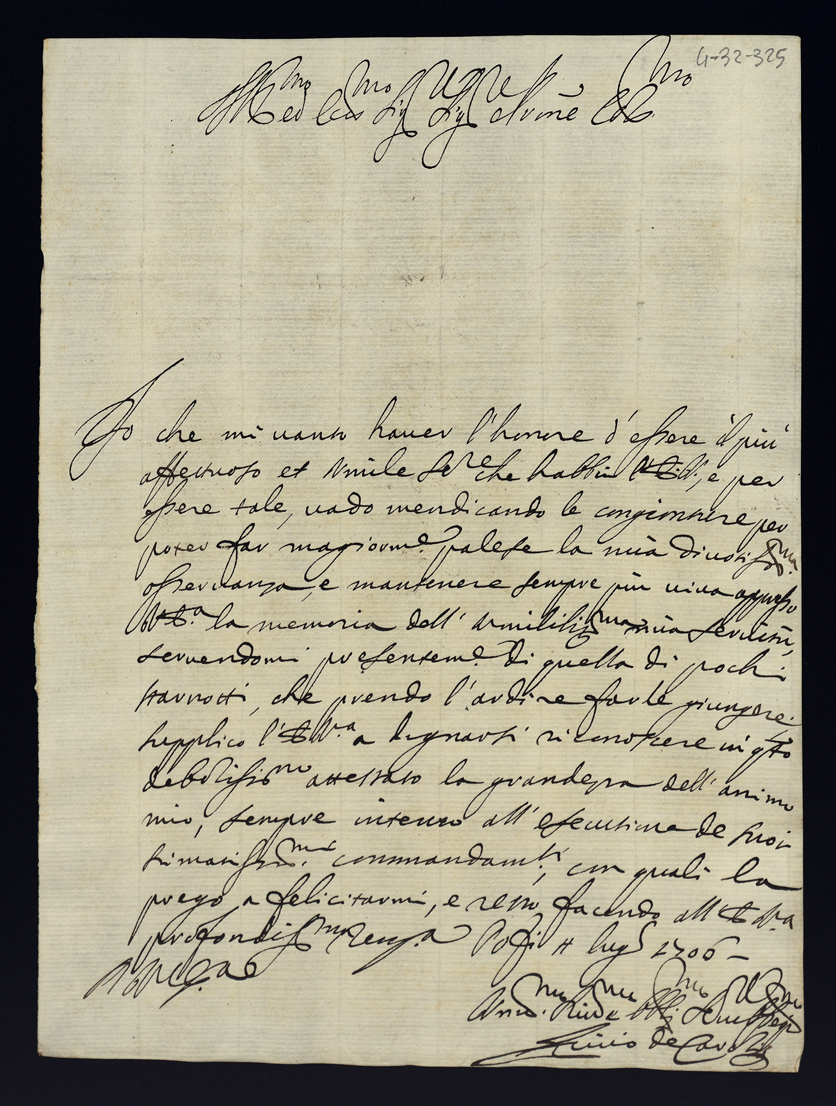 4-32-325
Ill.mo ed Ecc.mo Sig.re Sig.re e P.rone Col.mo
Io che mi vanto haver l'honore d'essere il più
affettuoso et umile Se.re che habbia e per
essere tale, vado mendicando le congionture per
poter far magiorm.e palese la mia divotiss.ma
osservanza, e mantenere sempre più viva appresso
la memoria dell' umiliss.ma mia servitù,
servendomi presentem.e di quella di pochi
starnotti, che prendo l'ardire farle giungere.
supplico l'E.V.a a degnarsi riconoscere in q.sto
deboliss.mo attestato la grandezza dell' animo
mio, sempre intento all' esecutione de suoi
stimatiss.mi commandam.ti, con quali la
prego a felicitarmi, e resto facendo all' E.V.a
profondiss.ma reuz.a Pofi 11 lug.o 1706
Um.o Div.o Obb.o Ser.re
de Carolis